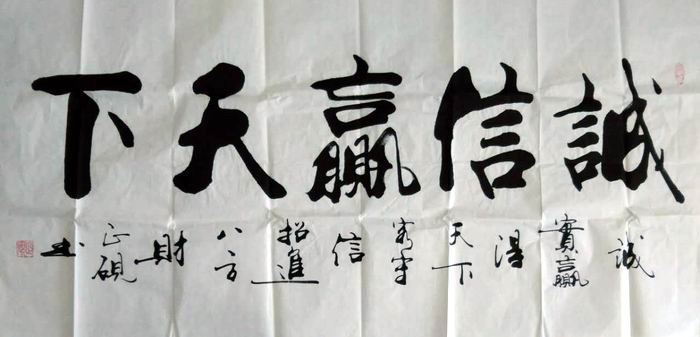 誠信贏天下
誠實贏得天下守信招進八方財正硯书